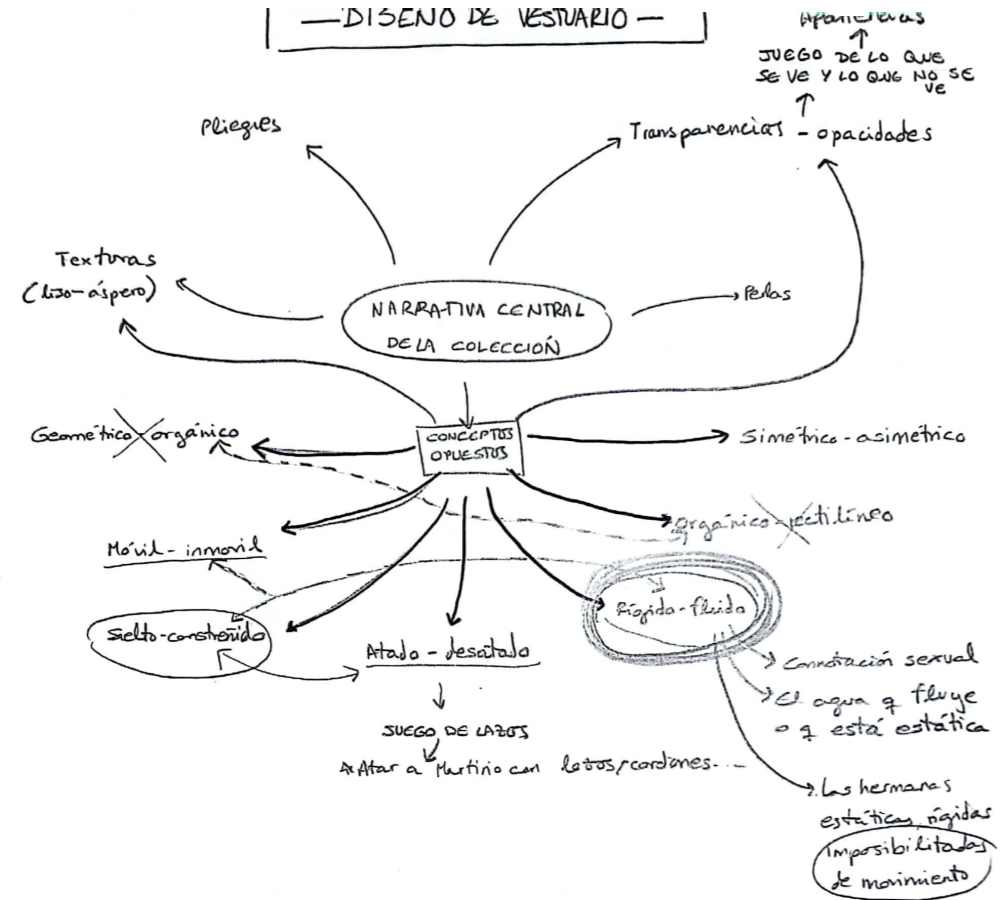 — DISEÑO DE VESTUARIO —
Apariencias
JUEGO DE LO QUE
SE VE Y LO QUE NO SE
VE
Pliegues
Transparencias - opacidades
Texturas
(liso-áspero)
NARRATIVA CENTRAL
DE LA COLECCIÓN
Perlas
Geométrico-orgánico
CONCEPTOS
OPUESTOS
Simétrico-asimétrico
Orgánico-rectilíneo
Móvil-inmovil
Rígido-fluido
Sielto-constreñido
Atado-desatado
Connotación sexual
El agua q fluye
o q está estática
JUEGO DE LAZOS
Atar a Martirio con lazos/cordones...
Las hermanas
estáticas, rígidas
imposibilitadas
de movimiento